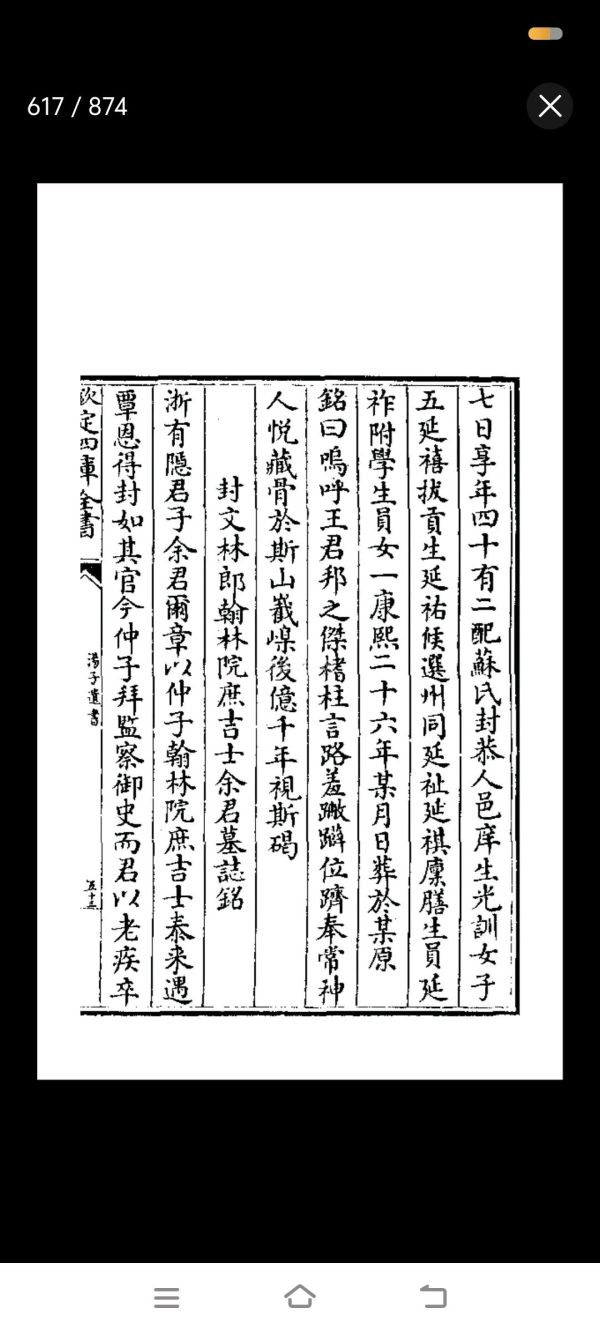 617 / 874
七日享年四十有二配蘇氏封恭人邑庠生光訓女子
五延禧拔貢生延祐候選州同延祉延祺廩膳生員延
祚附學生員女一康熙二十六年某月日葬於某原
銘曰嗚呼王君邦之傑楮柱言路羞蹩躃位躋奉常神
人悅藏骨於斯山嶻嵲後億千年視斯碣
封文林郎翰林院庶吉士余君墓誌銘
浙有隱君子余君爾章以仲子翰林院庶吉士泰来遇
覃恩得封如其官今仲子拜監察御史而君以老疾卒
欽定四庫全書
湯子遺書
五十三